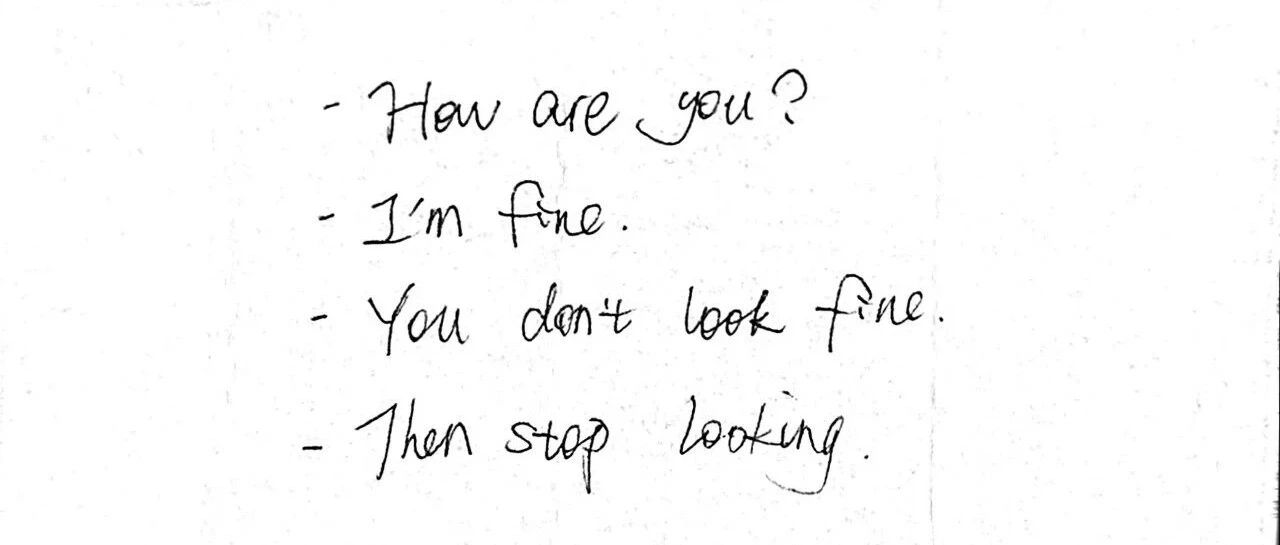 - How are you?
- I'm fine.
- You don't look fine.
- Then stop looking.